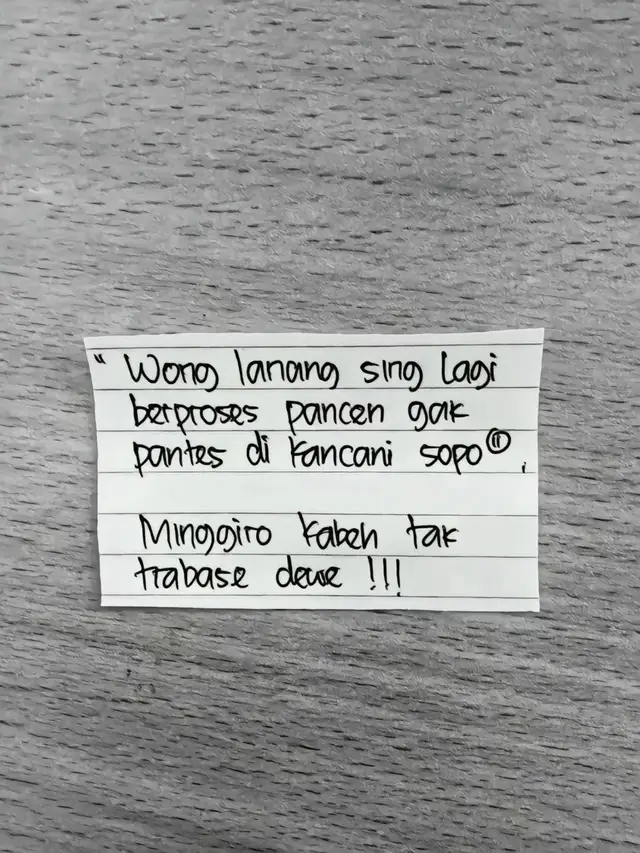 " Wong lanang sing lagi
berproses pancen gak
pantes di kancani sopo⑪,
Minggiro kabeh tak
trabase dewe !!!